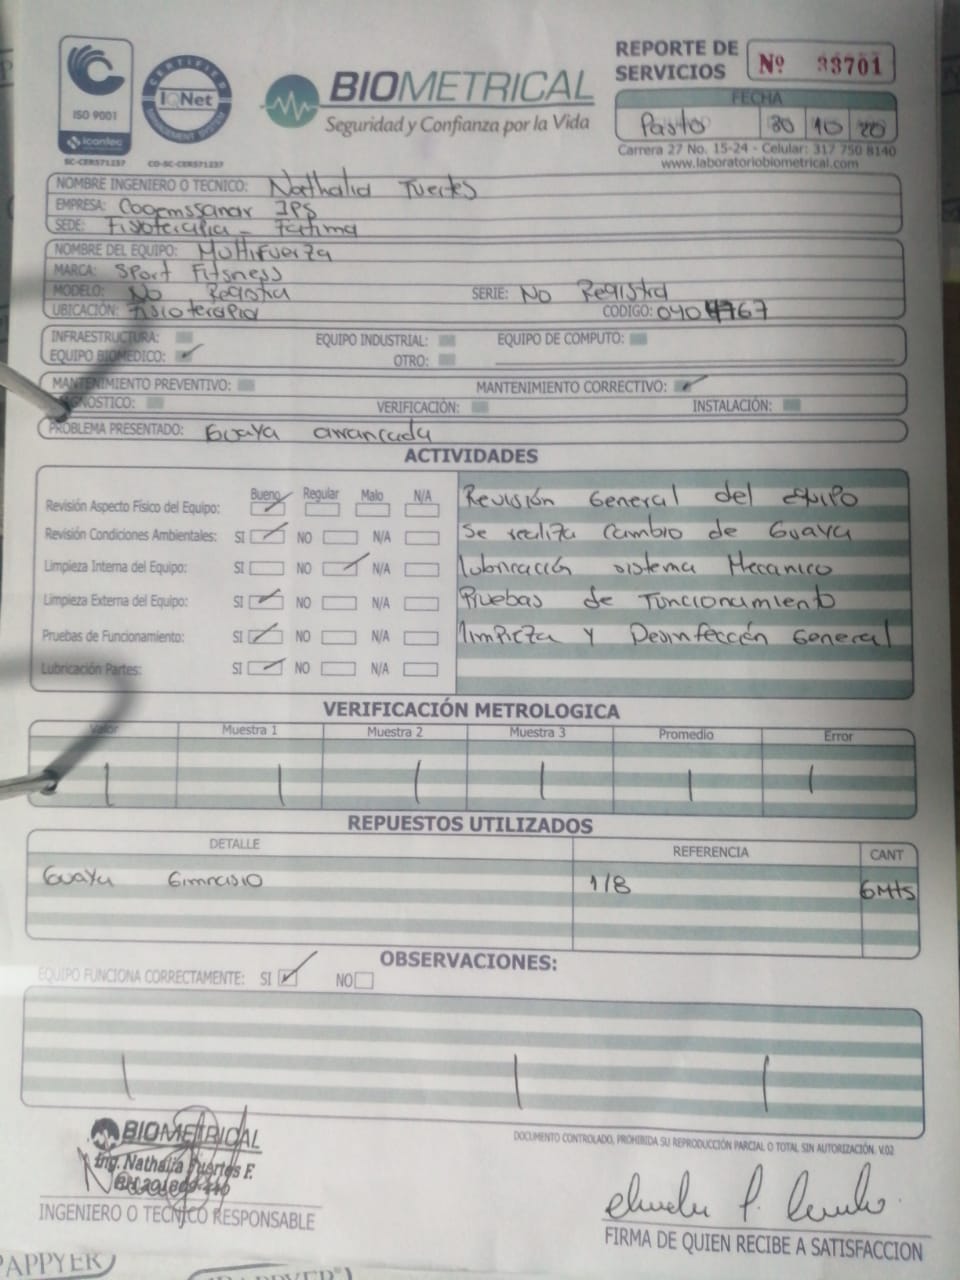 ISO 9001
icontec
SC-CER571237
CERTIFIED
IQNet
MANAGEMENT SYSTEM
CO-SC-CER571237
BIOMETRICAL
Seguridad y Confianza por la Vida
REPORTE DE SERVICIOS Nº 33701
FECHA
Pasto 30 10 20
Carrera 27 No. 15-24 - Celular: 317 750 8140
www.laboratoriobiometrical.com
NOMBRE INGENIERO O TECNICO: Nathalia Fuertes
EMPRESA: Cooemssanar IPS
SEDE: Fisioterapia - Fatima
NOMBRE DEL EQUIPO: Multifuerza
MARCA: Sport Fitsness
MODELO: No Registra SERIE: No Registra
UBICACIÓN: Fisioterapia CODIGO: 0404767
INFRAESTRUCTURA: EQUIPO INDUSTRIAL: EQUIPO DE COMPUTO:
EQUIPO BIOMEDICO: OTRO:
MANTENIMIENTO PREVENTIVO: MANTENIMIENTO CORRECTIVO:
DIAGNOSTICO: VERIFICACIÓN: INSTALACIÓN:
PROBLEMA PRESENTADO: Guaya arrancada
ACTIVIDADES
Bueno Regular Malo N/A
Revisión Aspecto Físico del Equipo:
Revisión Condiciones Ambientales: SI NO N/A
Limpieza Interna del Equipo: SI NO N/A
Limpieza Externa del Equipo: SI NO N/A
Pruebas de Funcionamiento: SI NO N/A
Lubricación Partes: SI NO N/A
Revisión General del equipo
Se realiza cambio de Guaya
lubricación sistema Mecanico
Pruebas de Funcionamiento
limpieza y Desinfección General
VERIFICACIÓN METROLOGICA
Valor Muestra 1 Muestra 2 Muestra 3 Promedio Error
REPUESTOS UTILIZADOS
DETALLE REFERENCIA CANT
Guaya Gimnasio 1/8 6Mts
OBSERVACIONES:
EQUIPO FUNCIONA CORRECTAMENTE: SI NO
DOCUMENTO CONTROLADO, PROHIBIDA SU REPRODUCCIÓN PARCIAL O TOTAL SIN AUTORIZACIÓN. V.02
BIOMETRICAL
Ing. Nathalia Fuertes F.
INGENIERO O TECNICO RESPONSABLE
FIRMA DE QUIEN RECIBE A SATISFACCION
PAPPYER